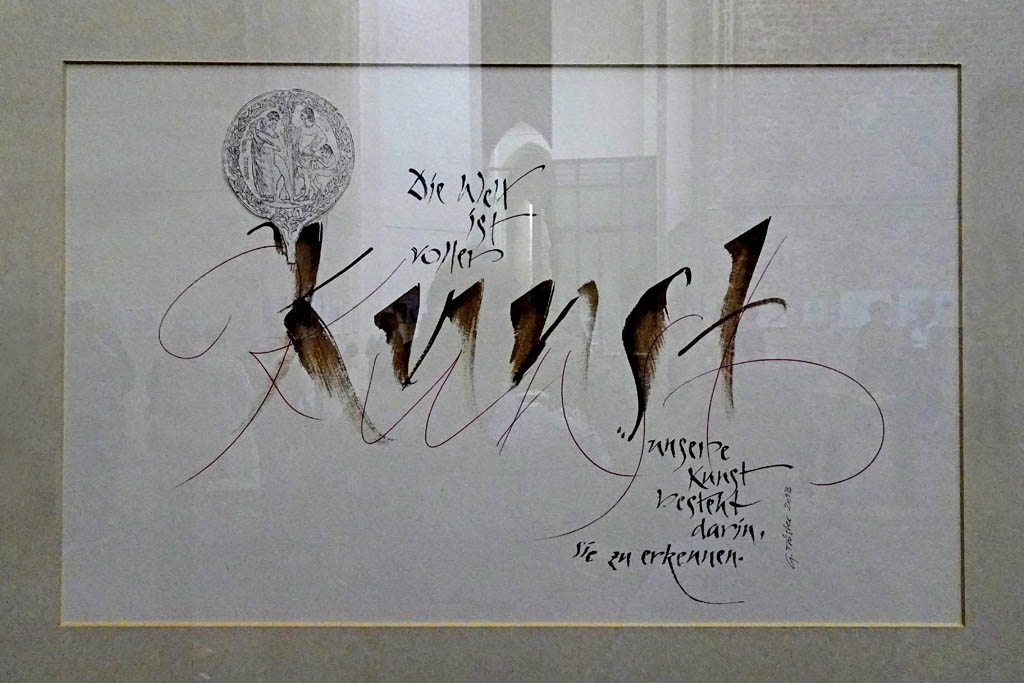 Die Welt
ist
voller
Kunst
unsere
Kunst
besteht
darin,
sie zu erkennen.
2013